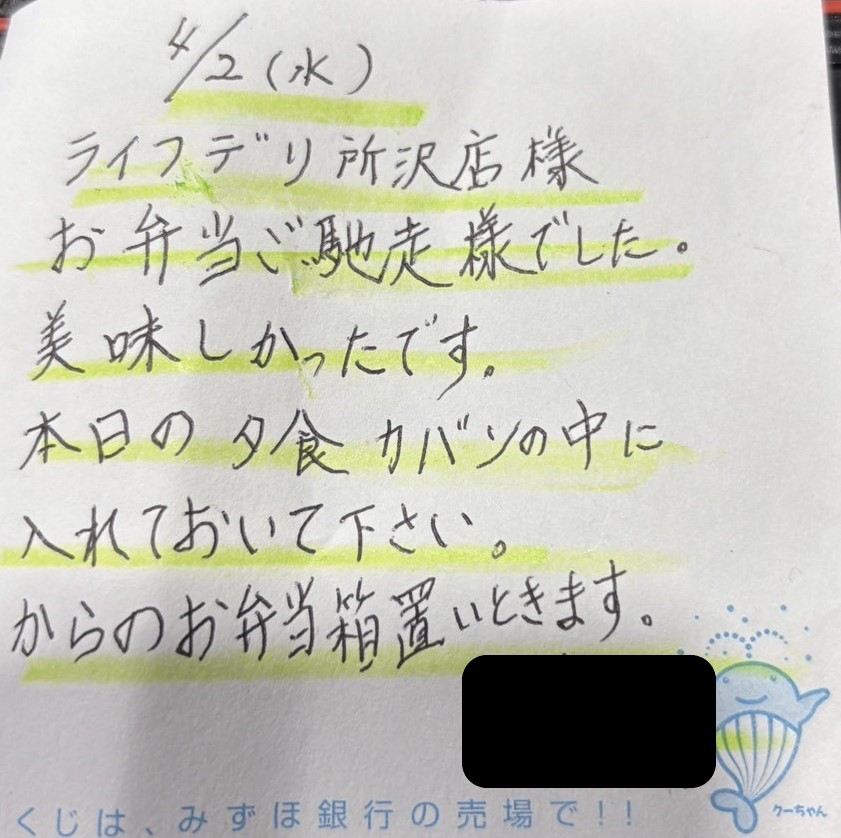 4/2(水)
ライフデリ所沢店様
お弁当ご馳走様でした。
美味しかったです。
本日の夕食カバンの中に
入れておいて下さい。
からのお弁当箱置いときます。
くじは、みずほ銀行の売場で!!
クーちゃん